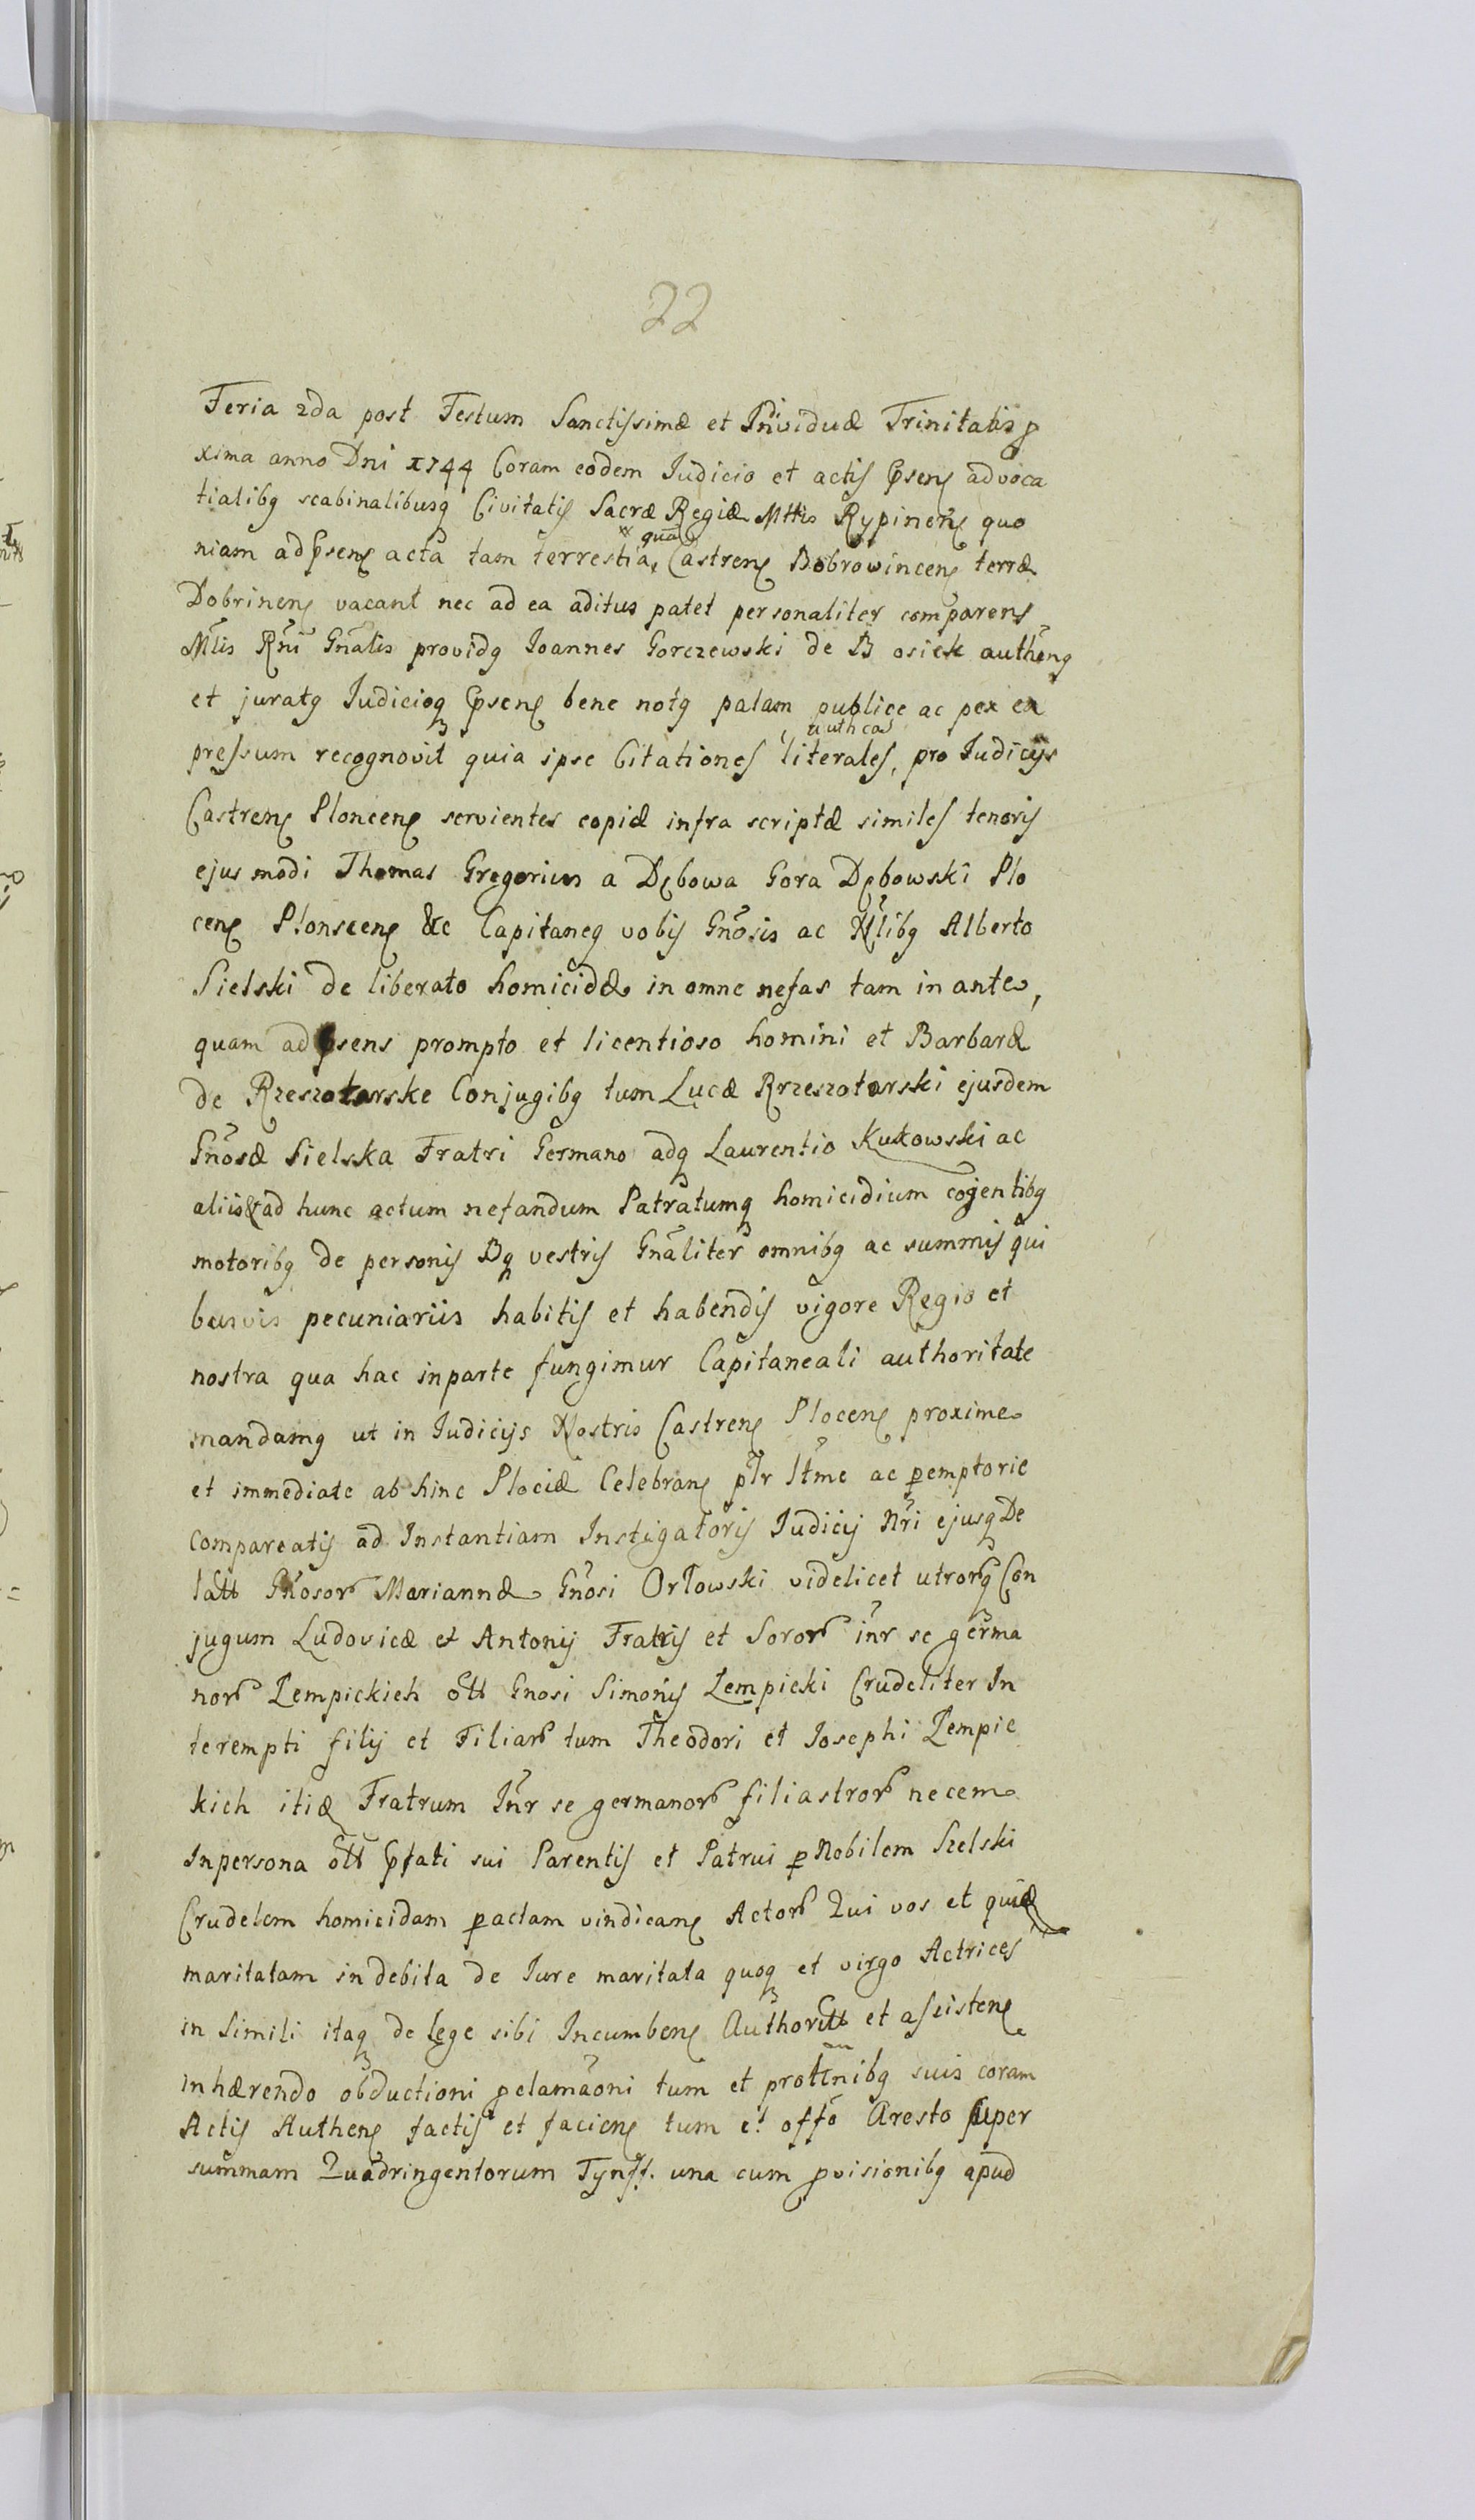 22
Feria 2da post Festum Sanctissimæ et Individuæ Trinitatis p
xima anno Dni 1744 Coram eodem Iudicio et actis Psens advoca
tialibq scabinalibusq Civitatis Sacræ Regiæ Mttis Rypinens quo
niam ad Psens acta tam terrestia, quã Castrens Bobrowincens terræ
Dobrinens vacant nec ad ea aditus patet personaliter comparens
Mtis Rni Gnalis providq Ioannes Gorczewski de B osiek authenq
et juratq Iudicioq Psens bene notq palam publice ac pex ex
pressum recognovit quia ipse Citationes literales, authcas pro Iudicijs
Castrens Ploncens servientes copiæ infra scriptæ similes tenoris
ejus modi Thomas Gregorius a Dębowa Gora Dębowski Plo
cens Plonscens &c Capitaneq vobis Gnosis ac Nlibq Alberto
Sielski de liberato homicidæ in omne nefas tam in ante,
quam ad Psens prompto et licentioso homini et Barbaræ
de Rzeszotarske Conjugibq tum Lucæ Rrzeszotarski ejusdem
Gnosæ Sielska Fratri Germano adq Laurentio Kukowski ac
aliis & ad hunc actum nefandum Patratumq homicidium cogentibq
motoribq de personis Bq vestris Gnaliter omnibq ac summis qui
busvis pecuniariis habitis et habendis vigore Regio et
nostra qua hac inparte fungimur Capitaneali authoritate
mandamq ut in Iudicijs Nostris Castrens Plocens proxime
et immediate ab hinc Plociæ Celebrans ptr ltme ac pemptorie
compareatis ad Instantiam Instigatoris Iudicij Nri ejusq De
latt Gnosor Mariannæ Gnosi Orłowski videlicet utrorq Con
jugum Ludovicæ et Antonij Fratris et Soror inr se germa
nor Łempickich ott Gnosi Simonis Łempicki Crudeliter In
terempti filij et Filiar tum Theodori et Iosephi Łempic
kich itiæ Fratrum Inr se germanor filiastror necem
Inpersona ott Pfati sui Parentis et Patrui p Nobilem Szelski
Crudelem homicidam pactam vindicans Actor Qui vos et quiæ
maritatam in debita de Iure maritata quoq et virgo Actrices
in Simili itaq de lege sibi Incumbens Authoritt et assistens
inhærendo obductioni pclamaoni tum et prottnibq suis coram
Actis Authens factis et faciens tum et offo Aresto super
summam Quadringentorum Tynff. una cum pvisionibq apud